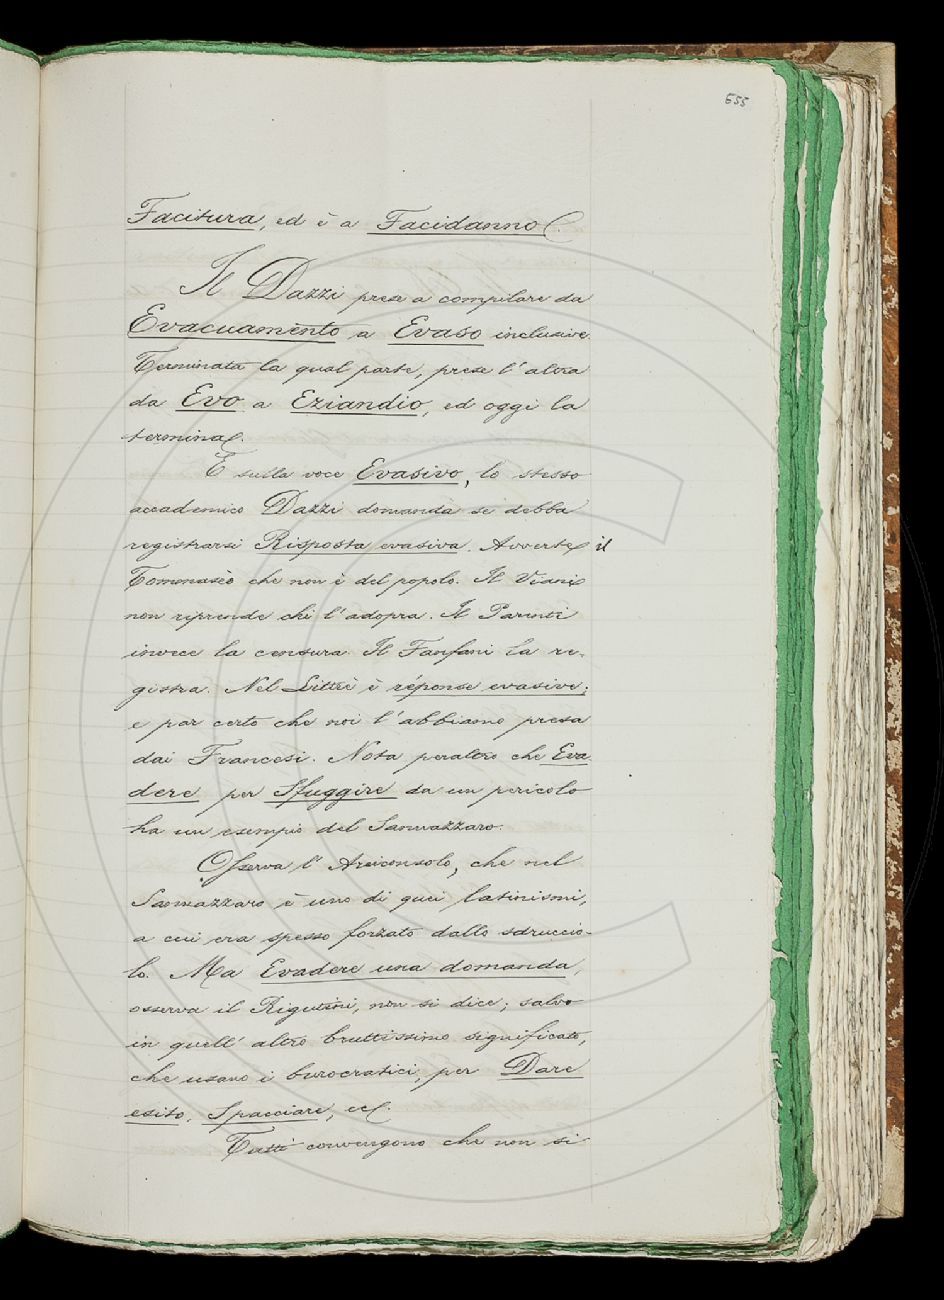 655
Facitura, ed è a Facidanno.
Il Dazzi prese a compilare da
Evacuamento a Evaso inclusive.
Terminata la qual parte, prese l'altra
da Evo a Eziandio, ed oggi la
termina.
E sulla voce Evasivo, lo stesso
accademico Dazzi domanda se debba
registrarsi Risposta evasiva. Avverte il
Tommasèo che non è del popolo. Il Viani
non riprende chi l'adopra. Il Parenti
invece la censura. Il Fanfani la re-
gistra. Nel Littrè è réponse evasive;
e par certo che noi l'abbiamo presa
dai Francesi. Nota peraltro che Eva
dere per Sfuggire da un pericolo
ha un esempio del Sannazzaro.
Osserva l'Arciconsolo, che nel
Sannazzaro è uno di quei latinismi,
a cui era spesso forzato dallo sdruccio-
lo. Ma Evadere una domanda,
osserva il Rigutini, non si dice; salvo
in quell'altro bruttissimo significato,
che usano i burocratici, per Dare
esito, Spacciare, ec.
Tutti convengono che non si